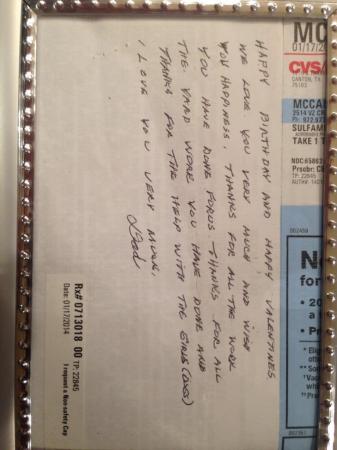 HAPPY BIRTHDAY AND HAPPY VALENTINES
WE LOVE YOU VERY MUCH AND WISH
YOU HAPPINESS. THANKS FOR ALL THE WORK
YOU HAVE DONE FOR US THANKS FOR ALL
THE YARD WORK YOU HAVE DONE AND
THANKS FOR THE HELP WITH THE GIRLS (DOGS)
I LOVE YOU VERY MUCH.
Dad
Rx# 0713018 00 TP: 22845
Date: 01/17/2014
I request a Non-safety Cap
MC
01/17/20
CVS/
CANTON, TX
75103
MCCA
2514 VZ CR
PH: 972.97
SULFAM
TAKE 1 T
NDC:65862
Prscbr: C
TP: 22845
AUTH#: 140
002459
N
for
• 20
a
• Pr
* Elig
** So
†Vac
††Pre
002361